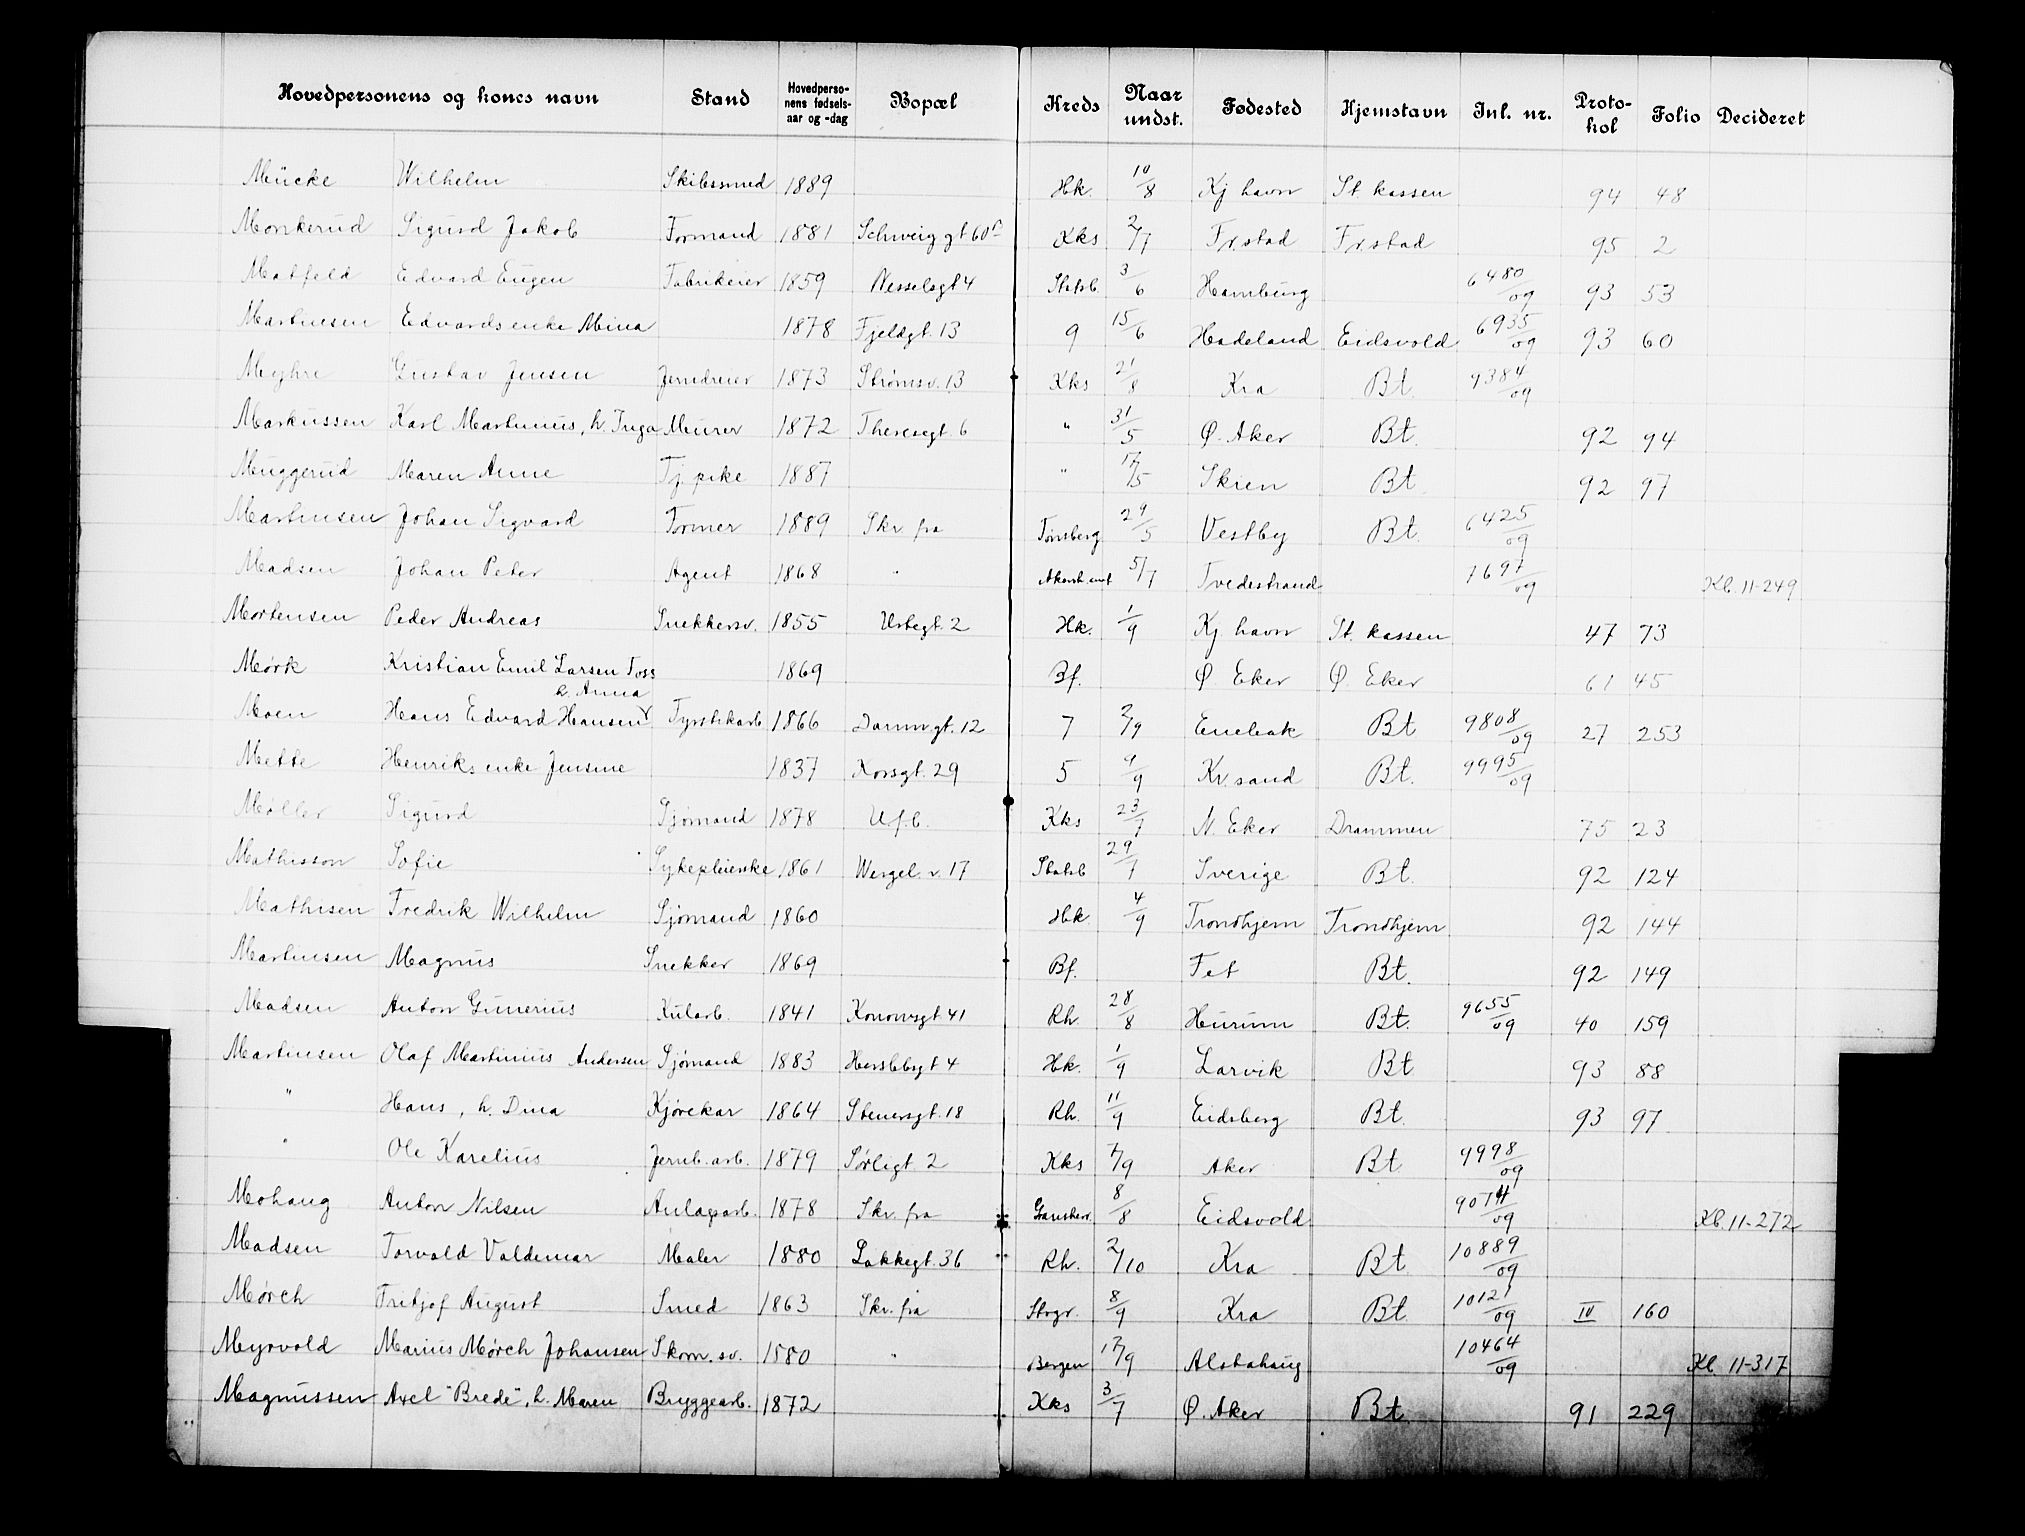 Hovedpersonens og kones navn Stand Hovedpersonens fødselsaar og -dag Bopæl Kreds Naar undst. Fødested Hjemstavn Inl. nr. Protokol Folio Decideret
Mücke Wilhelm Skibssmed 1889 Hk. 10/8 Kj havn St. kassen 94 48
Monkerud Sigurd Jakob Formand 1881 Schweiggt 60 Kks 2/7 Fr.stad Fr.stad 95 2
Matfeld Edvard Eugen Fabrikeier 1859 Nesselsgt 4 Statsb. 3/6 Hamburg 6480/09 93 53
Martinsen Edvards enke Mina 1878 Fjeldgt. 13 9 15/6 Hadeland Eidsvold 6935/09 93 60
Meyhre Gustav Jensen Jerndreier 1873 Strømsv. 13 Kks 21/8 Kra Bt. 9384/09
Markussen Karl Martinius, h. Inga Murer 1872 Theresegt 6 " 31/5 Ø. Aker Bt. 92 94
Muggerud Maren Anne Tj. pike 1887 " 17/5 Skien Bt 92 97
Martinsen Johan Sigvard Former 1889 Skr. fra Tønsberg 29/5 Vestby Bt. 6425/09
Madsen Johan Peter Agent 1868 " Akersh. amt 5/7 Tvedestrand 7697/09 Kb. 11-249
Mortensen Peder Andreas Snekkersv. 1855 Urtegt. 2 Hk. 1/9 Kj havn St. kassen 47 73
Mørk Kristian Emil Larsen Foss 1869 Bf. Ø. Eker Ø. Eker 61 45
h. Anna
Moen Hans Edvard Hansen Fyrstikarb 1866 Darresgt. 12 7 2/9 Enebak Bt 9808/09 27 253
Mette Henriks enke Jensine 1837 Korsgt. 29 5 9/9 Kr. sand Bt. 9995/09
Møller Sigurd Sjømand 1878 U.f.b. Kks 23/7 N. Eker Drammen 75 23
Mathisson Sofie Sykepleierske 1861 Wergel. v. 17 Statsb 29/7 Sverige Bt. 92 124
Mathisen Fredrik Wilhelm Sjømand 1860 Hk 4/9 Trondhjem Trondhjem 92 144
Martinsen Magnus Snekker 1869 Bf. Fet Bt. 92 149
Madsen Anton Gunerius Kularb. 1841 Konowsgt 41 Rh. 28/8 Hurum Bt. 9655/09 40 159
Martinsen Olaf Martinius Andersen Sjømand 1883 Herslebsgt 4 Hk. 1/9 Larvik Bt 93 88
" Hans, h. Dina Kjørekar 1864 Stenersgt. 18 Rh. 11/9 Eidsberg Bt. 93 97
" Ole Karelius Jernb. arb. 1879 Sørligt 2 Kks 7/9 Aker Bt 9998/09
Mohaug Anton Nilsen Anlagsarb. 1878 Skr. fra 8/8 Eidsvold 9074/09 Kb. 11-272
Madsen Torvald Valdemar Maler 1880 Lakkegt. 36 Rh. 2/10 Kra Bt 10889/09
Mørch Fritjof August Smed 1863 Skr. fra 8/9 Kra Bt. 10121/09 IV 160
Myrvold Marius Mørch Johansen Skom. sv. 1880 " Bergen 17/9 Alstahaug 10464/09 Kb 11-317
Magnussen Axel "Brede", h. Maren Bryggearb. 1872 Kks 3/7 Ø. Aker Bt. 91 229